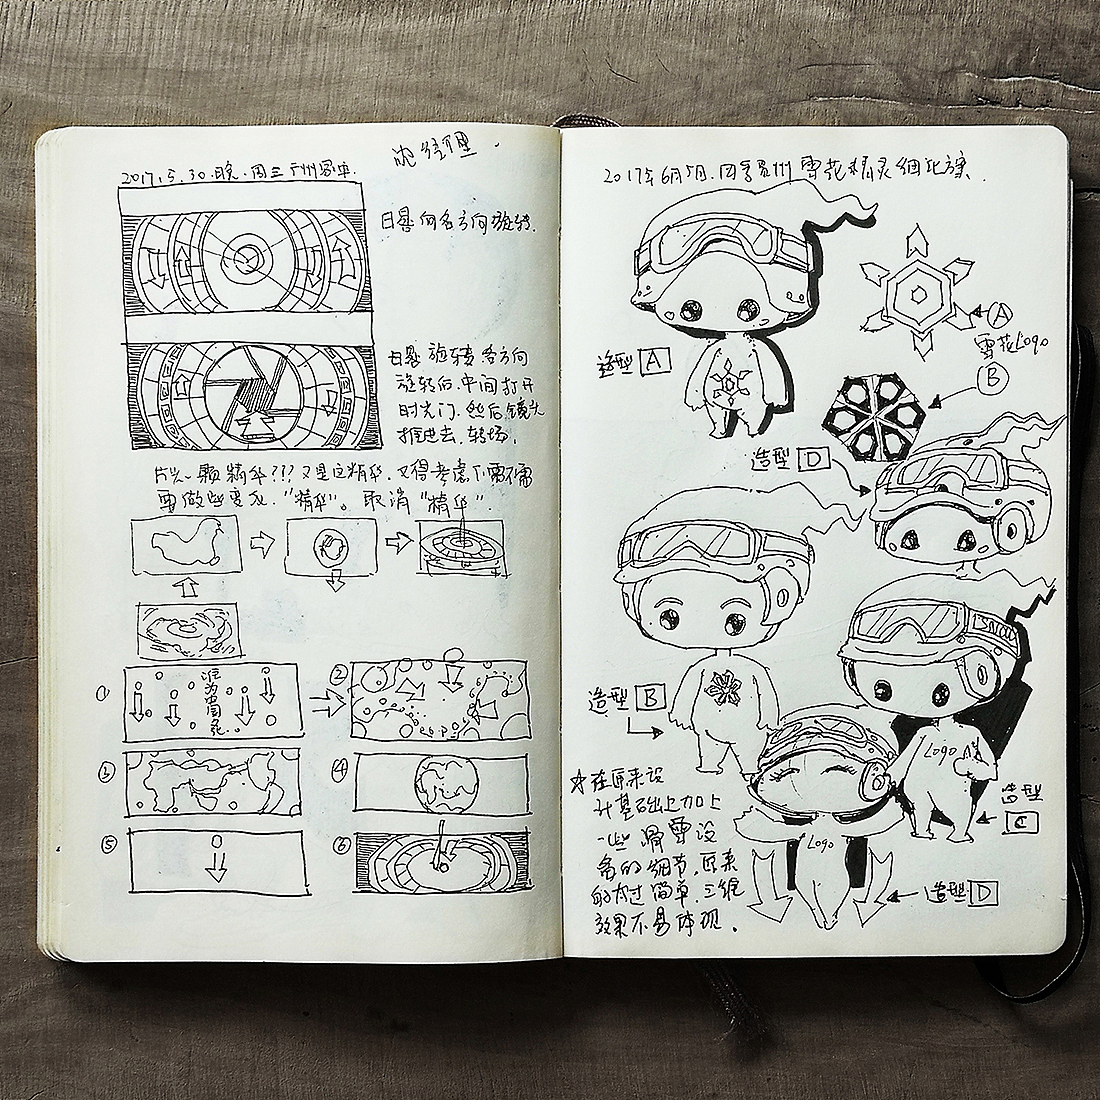 沈经理.
2017.5.30.晚.周三 广州客车.
日晷向各方向旋转.
日晷旋转各方向
旋转后.中间打开
时光门.然后镜头
推进去.转场.
片头一颗精华???又是这精华.又得考虑下需不需
要做些变化."精华"。取消"精华".
①
②
③
④
⑤
⑥
2017年6月5日.四季贵州 雪花精灵细化方案.
造型 A
A
雪花Logo
B
造型 D
造型 B
Logo
造型
C
Logo
造型 D
☆在原来设
计基础上加上
一些滑雪设
备的细节.原来
的太过简单.三维
效果不易体现.